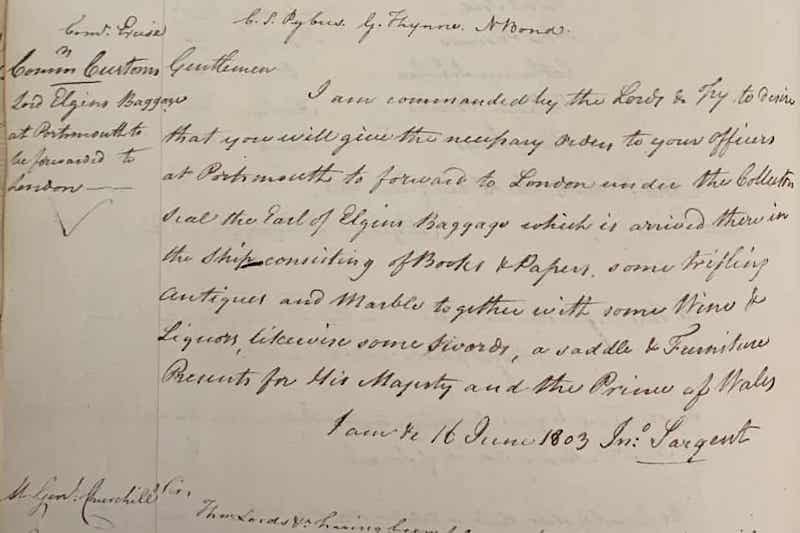 C. S. Pybus. G. Thynne. N Bond.
Comn. Excise
Comn Customs
Lord Elgins Baggage
at Portsmouth to
be forwarded to
London
Gentlemen
I am commanded by the Lords &c Try to desire
that you will give the necessary orders to your Officers
at Portsmouth to forward to London under the Collectors
Seal the Earl of Elgins Baggage which is arrived there in
the Ship consisting of Books & Papers, some trifling
Antiques and Marble together with some Wine &
Liquors, likewise some Swords, a saddle & Furniture
Presents for His Majesty and the Prince of Wales
I am &c 16 June 1803 Jno. Sargent
M. Genl. Churchill
Sir,
The Lords &c having been